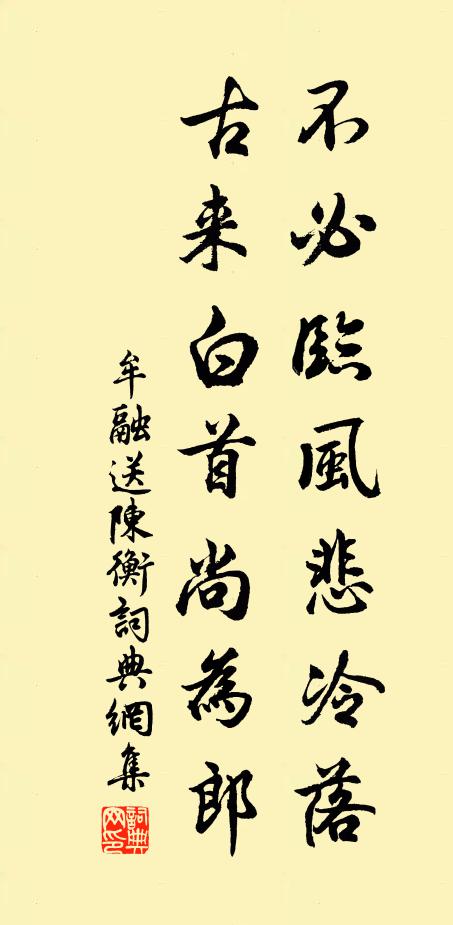 不必臨風悲冷落
古来白首尚為郎
牟融送陳衡詞典網集
詞典網印